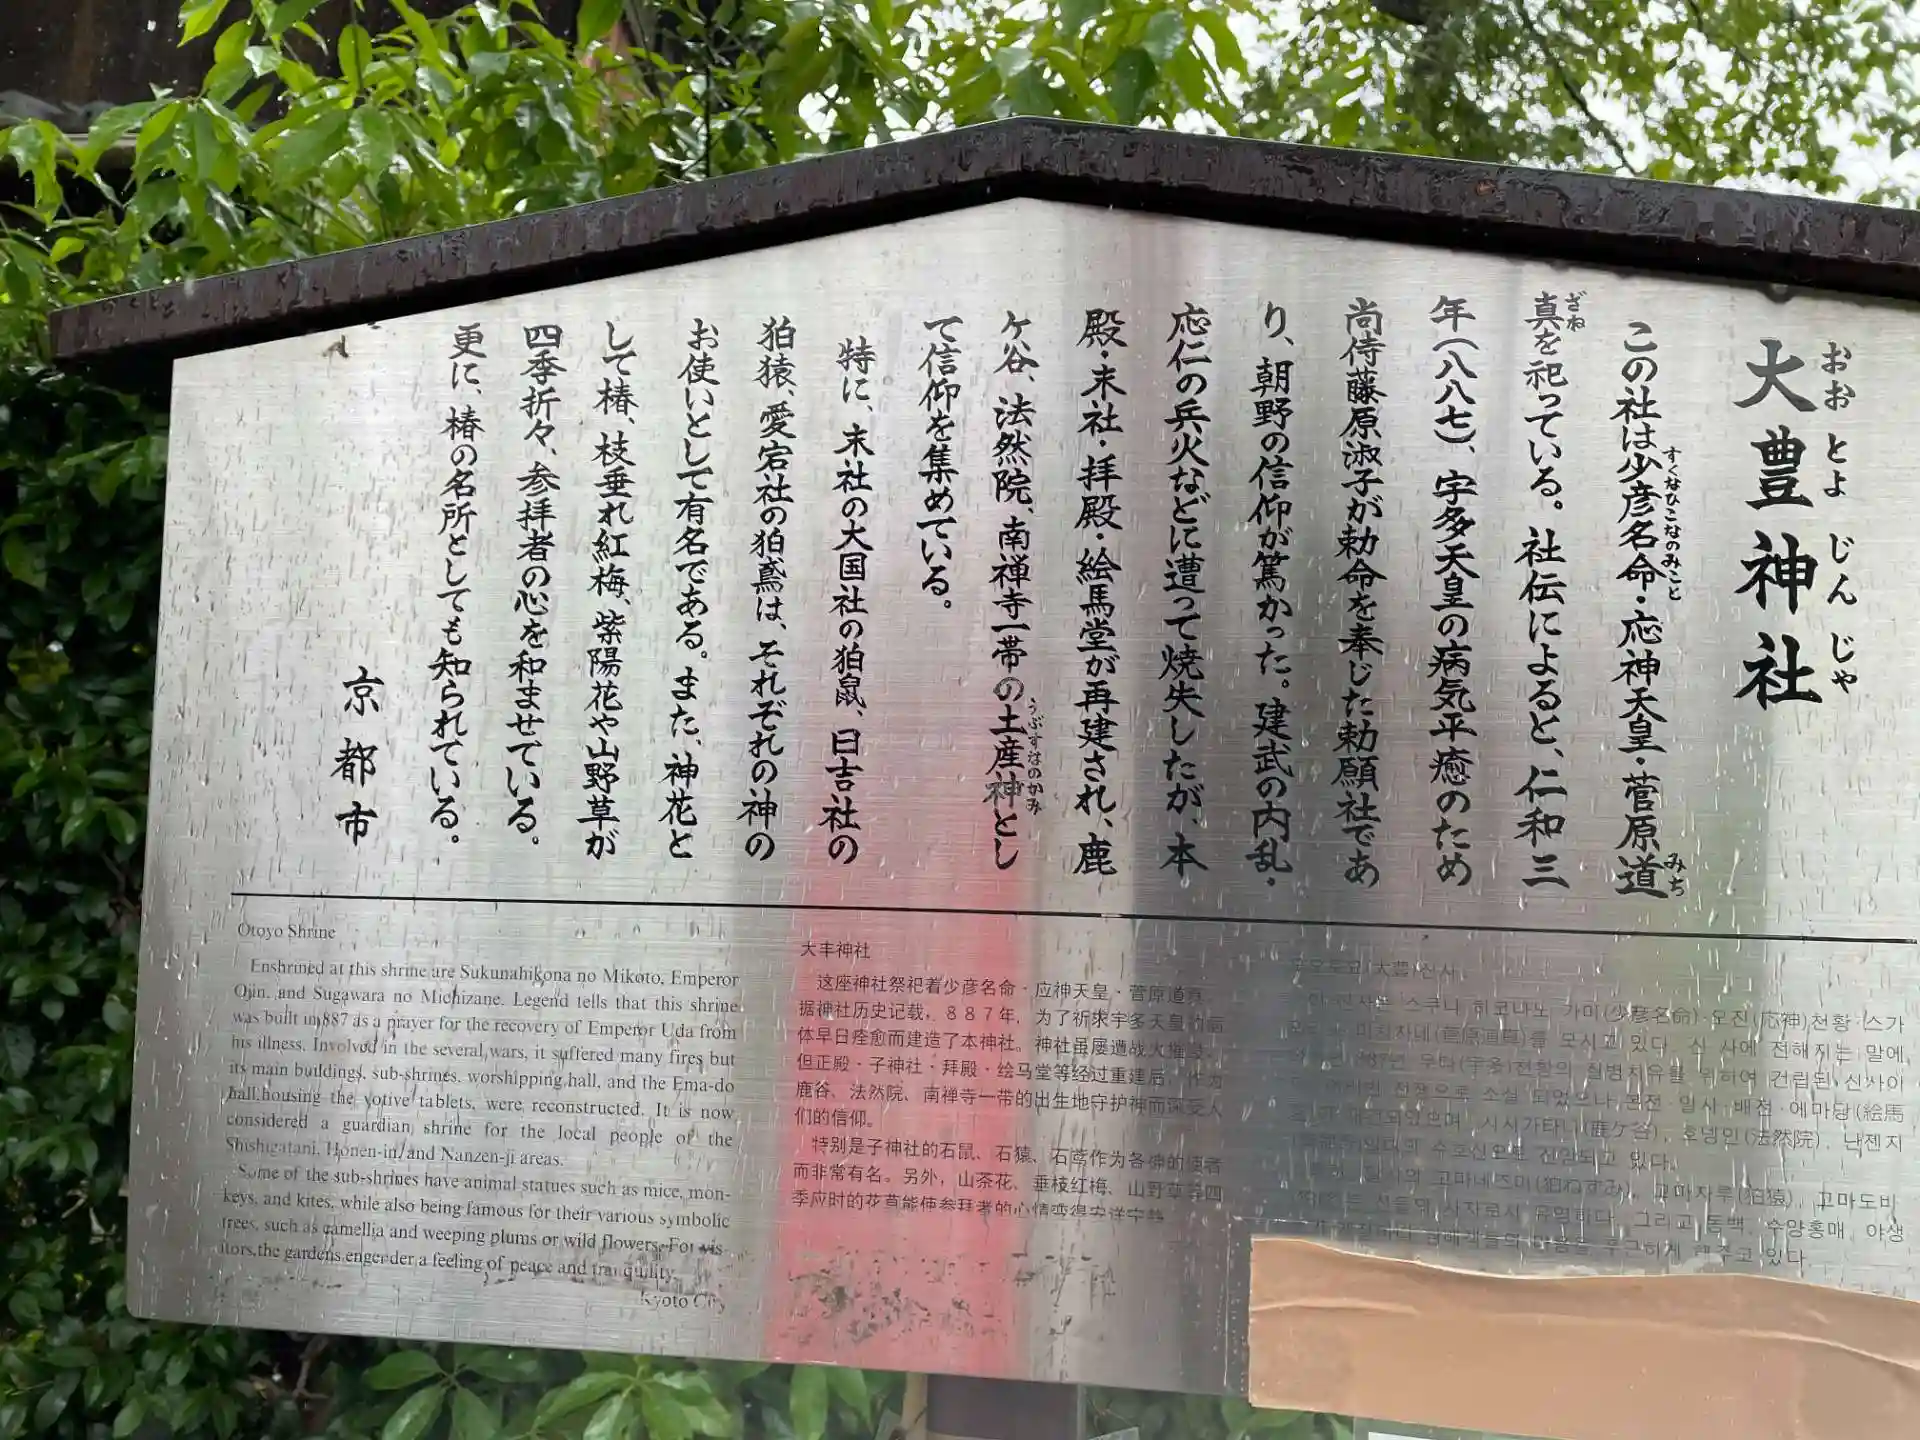 大豊神社
おおとよじんじゃ
この社は少彦名命・応神天皇・菅原道
すくなひこなのみこと
みち
真を祀っている。社伝によると、仁和三
ざね
年(八八七)、宇多天皇の病気平癒のため
尚侍藤原淑子が勅命を奉じた勅願社であ
り、朝野の信仰が篤かった。建武の内乱・
応仁の兵火などに遭って焼失したが、本
殿・末社・拝殿・絵馬堂が再建され、鹿
ケ谷、法然院、南禅寺一帯の土産神とし
うぶすなのかみ
て信仰を集めている。
特に、末社の大国社の狛鼠、日吉社の
狛猿、愛宕社の狛鳶は、それぞれの神の
お使いとして有名である。また、神花と
して椿、枝垂れ紅梅、紫陽花や山野草が
四季折々、参拝者の心を和ませている。
更に、椿の名所としても知られている。
京都市
Otoyo Shrine
Enshrined at this shrine are Sukunahikona no Mikoto, Emperor
Ojin, and Sugawara no Michizane. Legend tells that this shrine
was built in 887 as a prayer for the recovery of Emperor Uda from
his illness. Involved in the several wars, it suffered many fires but
its main buildings, sub-shrines, worshipping hall, and the Ema-do
hall housing the votive tablets, were reconstructed. It is now
considered a guardian shrine for the local people of the
Shishigatani, Honen-in, and Nanzen-ji areas.
Some of the sub-shrines have animal statues such as mice, mon-
keys, and kites, while also being famous for their various symbolic
trees, such as camellia and weeping plums or wild flowers. For vis-
itors, the gardens engender a feeling of peace and tranquility.
Kyoto City
大丰神社
这座神社祭祀着少彦名命・应神天皇・菅原道真。
据神社历史记载，８８７年，为了祈求宇多天皇
体早日痊愈而建造了本神社。神社虽屡遭战火摧毁，
但正殿・子神社・拜殿・绘马堂等经过重建后，作为
鹿谷、法然院、南禅寺一带的出生地守护神而深受人
们的信仰。
特别是子神社的石鼠、石猿、石鸢作为各神的使者
而非常有名。另外，山茶花、垂枝红梅、山野草等四
季应时的花草能使参拜者的心情变得安详宁静
(大豊)신사
스쿠나 히코나노 가미(少彦名命)·오진(応神)천황·스가
미치자네(菅原道真)를 모시고 있다. 신 사에 전해지는 말에
887년 우다(宇多)천황의 질병치유를 위하여 건립된 신사이
전쟁으로 소실 되었으나 본전·말사·배전·에마당(絵馬
재건되었으며, 시시가타니(鹿ケ谷), 호넨인(法然院), 난젠지
일대의 수호신으로 신앙되고 있다.
말사의 고마네즈미(狛ねずみ), 고마자루(狛猿), 고마도비
신들의 사자로서 유명하다. 그리고 동백, 수양홍매, 야생
해주고 있다.